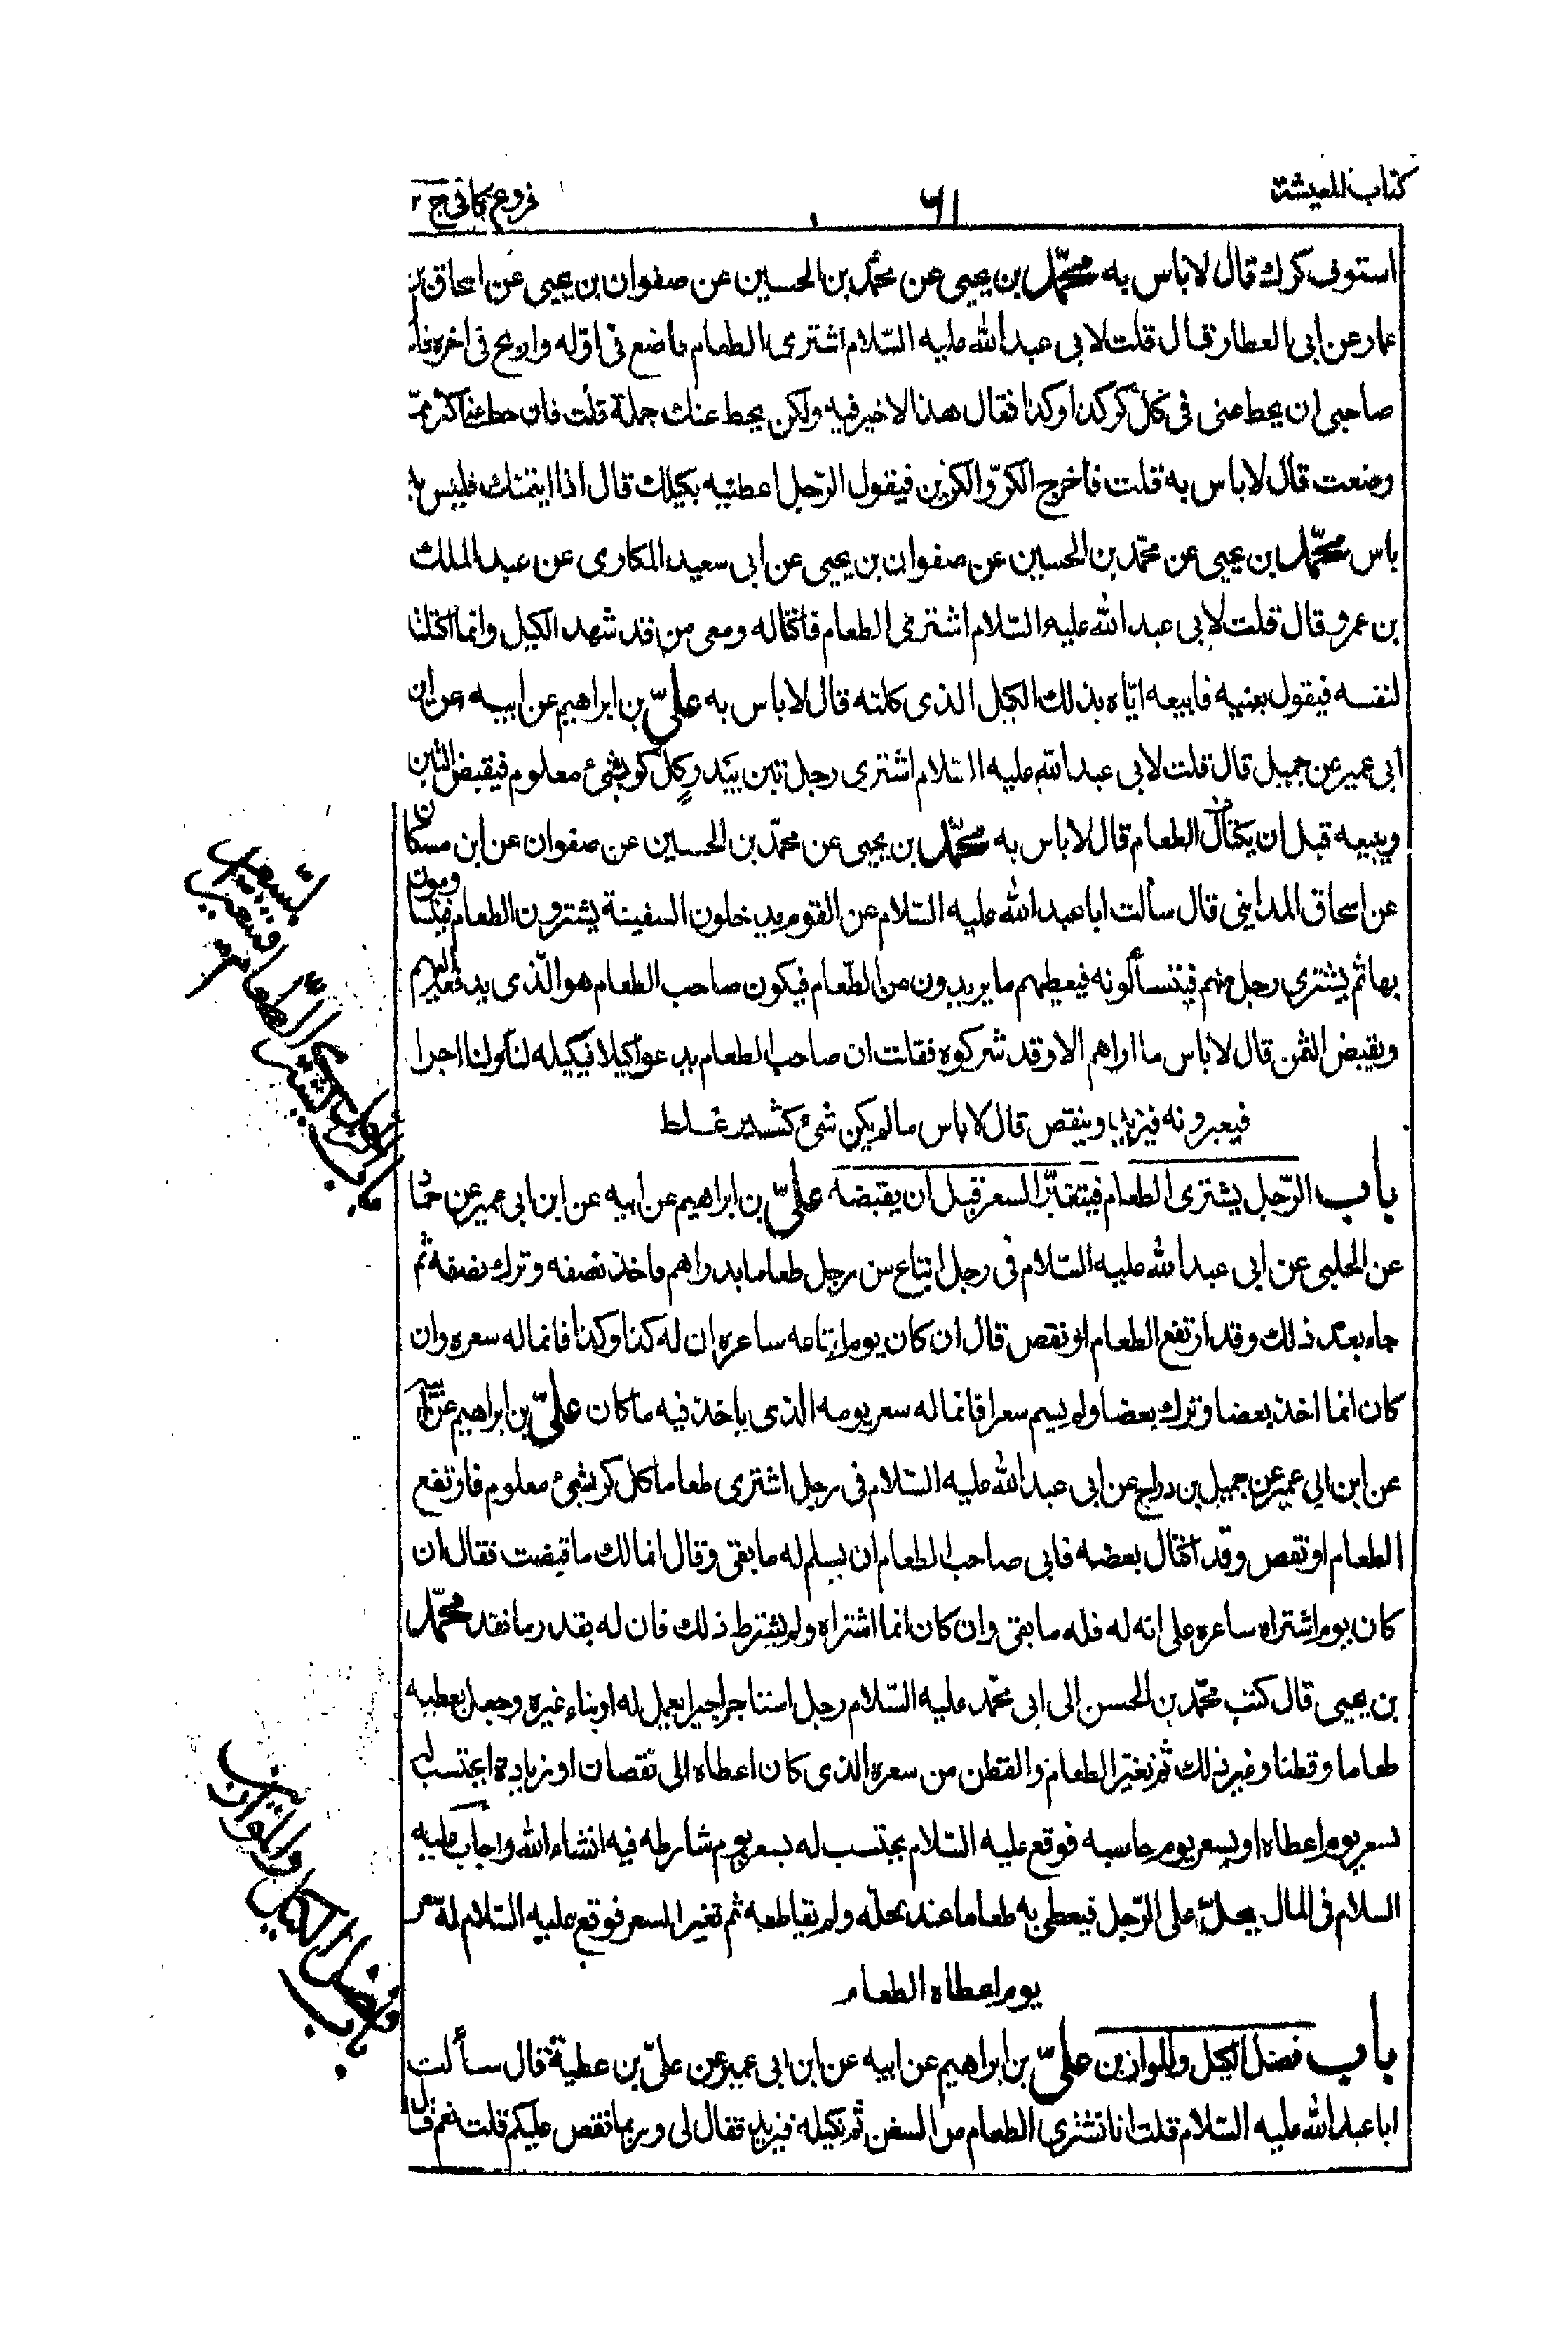 كتاب المعيشة ٦١ فروع كافى ج ٢
استوف كرك قال لا باس به محمّد بن يحيى عن محمّد بن الحسين عن صفوان بن يحيى عن اسحاق بن
عمار عن ابى العطارد قال قلت لابى عبد الله عليه السّلام اشترى الطعام فاضع فى اوّله واربح فى اخره فاسئل
صاحبى ان يحط عنى فى كل كر كذا وكذا فقال هذا لا خير فيه ولكن يحط عنك جملة قلت فان حط عنى اكثر ممّا
وضعت قال لا باس به قلت فاخرج الكرّ والكرّين فيقول الرّجل اعطنيه بكيلك قال اذا ايتمنك فليس به
باس محمّد بن يحيى عن محمّد بن الحسين عن صفوان بن يحيى عن ابى سعيد المكارى عن عبد الملك
بن عمرو قال قلت لابى عبد الله عليه السّلام اشترى الطعام فاكتاله ومعى من قد شهد الكيل وانما اكتلته
لنفسه فيقول بعنيه فابيعه ايّاه بذلك الكيل الذى كلته قال لا باس به علىّ بن ابراهيم عن ابيه عن ابن
ابى عمير عن جميل قال قلت لابى عبد الله عليه السّلام اشترى رجل تبن بيدر كل كر بشئ معلوم فيقبض التبن
ويبيعه قبل ان يكتال الطعام قال لا باس به محمّد بن يحيى عن محمّد بن الحسين عن صفوان عن ابن مسكان
عن اسحاق المداينى قال سألت ابا عبد الله عليه السّلام عن القوم يدخلون السفينة يشترون الطعام فيتساومون
بها ثم يشترى رجل منهم فيتسألونه فيعطيهم ما يريدون من الطّعام فيكون صاحب الطعام هو الّذى يدفعه اليهم
ويقبض الثمن قال لا باس ما اراهم الا وقد شركوه فقلت ان صاحب الطعام يدعو كيلا فيكيله لنا ولنا اجراء
فيعبرونه فيزيد وينقص قال لا باس ما لم يكن شئ كثير غلط
باب الرّجل يشترى الطعام فيتغيّر السعر قبل ان يقبضه علىّ بن ابراهيم عن ابيه عن ابن ابى عمير عن حمّاد
عن الحلبى عن ابى عبد الله عليه السّلام فى رجل ابتاع من رجل طعاما بدراهم فاخذ نصفه وترك نصفه ثم
جاء بعد ذلك وقد ارتفع الطعام او نقص قال ان كان يوم ابتاعه ساعره ان له كذا وكذا فانما له سعره وان
كان انما اخذ بعضا وترك بعضا ولم يسم سعرا فانما له سعر يومه الذى ياخذ فيه ما كان علىّ بن ابراهيم عن ابيه
عن ابن ابى عمير عن جميل بن دراج عن ابى عبد الله عليه السّلام فى رجل اشترى طعاما كل كر بشئ معلوم فارتفع
الطعام او نقص وقد اكتال بعضه فابى صاحب الطعام ان يسلم له ما بقى وقال انما لك ما قبضت فقال ان
كان يوم اشتراه ساعره على انه له فله ما بقى وان كان انما اشتراه ولم يشترط ذلك فان له بقدر ما نقد محمّد
بن يحيى قال كتب محمّد بن الحسن الى ابى محمّد عليه السّلام رجل استاجر اجيرا يعمل له او بناء غيره وجعل يعطيه
طعاما وقطنا وغير ذلك ثم تغيّر الطعام والقطن من سعره الذى كان اعطاه الى نقصان او زيادة ايحتسب له
بسعر يوم اعطاه او بسعر يوم حاسبه فوقع عليه السّلام يحتسب له بسعر يوم شارطه فيه انشاء الله واجاب عليه
السلام فى المال يحلّ على الرّجل فيعطى به طعاما عند محلّه ولم يقاطعه ثم تغير السعر فوقع عليه السّلام له سعر
يوم اعطاه الطعام
باب فضل الكيل والموازين علىّ بن ابراهيم عن ابيه عن ابن ابى عمير عن علىّ بن عطية قال سألت
ابا عبد الله عليه السّلام قلت انا نشترى الطعام من السفن ثم نكيله فيزيد فقال لى وربما نقص عليكم قلت نعم قال
باب الرجل يشترى الطّعام فيتغير السعر
باب فضل الكيل والموازين